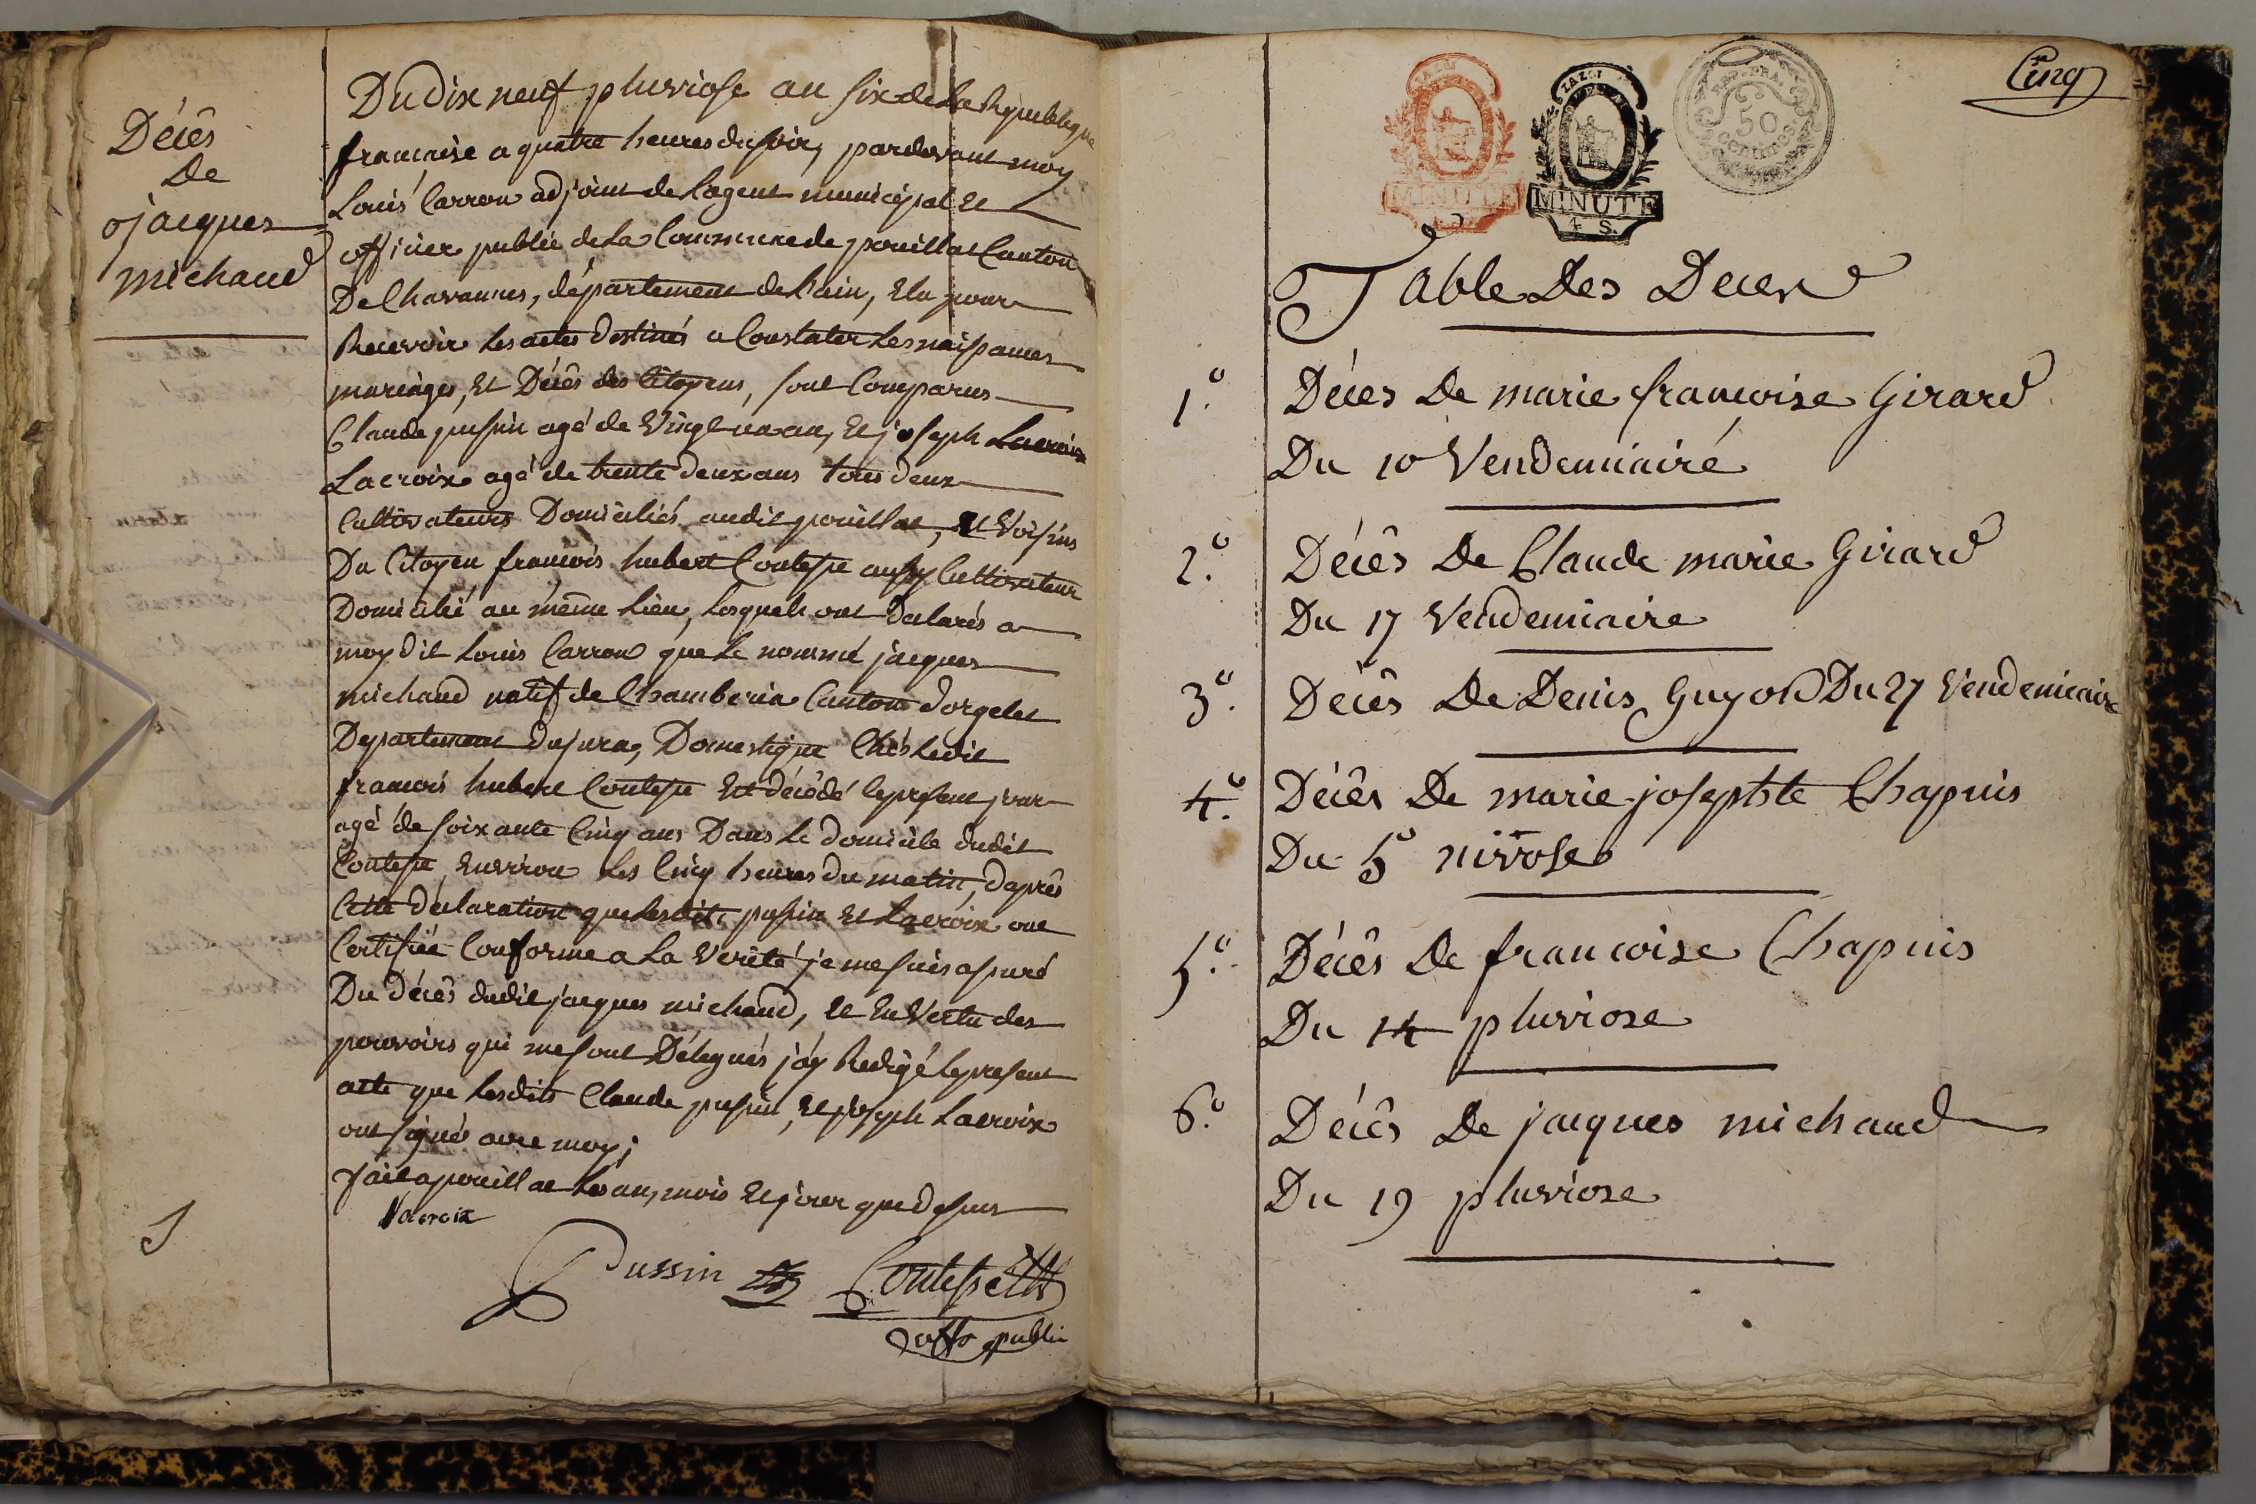 Décês
De
jacques
michaud
Du dix neuf pluviose an six de la Republique
francaise a quatre heures du soir, pardevant moy
Louis Carron adjoint de lagent municipal et
officier public de la Commune de pouillat Canton
De Chavannes, département de lain, Elu pour
Recevoir les actes destinés a Constater les naissances
mariages, et Décês des Citoyens, sont Comparus
Claude pussin agé de Vingt un an, et joseph Lacroix
Lacroix agé de trente deux ans tous deux
Cultivateurs Domiciliés audit pouillat, et Voisins
Du Citoyen francois hubert Contesse aussy Cultivateur
Domicilié au même lieu, lesquels ont déclarés a
moy dit Louis Carron que le nommé jacques
michaud natif de Chamberia Canton dorgelet
Departement du jura, Domestique Chés ledit
francois hubert Contesse Est décédé le present jour
agé de soixante Cinq ans Dans le domicile dudit
Contesse Environ les Cinq heures du matin, daprês
Cette déclaration que lesdits pussin et Lacroix ont
Certifiée Conforme a la Verité je me suis assuré
Du décês dudit jacques michaud, et En Vertu des
pouvoirs qui me sont Délegués jáy Redigé le present
acte que lesdits Claude pussin, et joseph Lacroix
ont signés avec moy;
fait a pouillat les an, mois et jour que dessus
Lacroix
Pussin Contesse
offr public
5
Cinq
MINUTE
MINUTE
4 S.
REP. FRA.
50
centimes.
Table Des Deces
1.º Décès De marie francoise Girard
Du 10 Vendemiaire
2.º Décês De Claude marie Girard
Du 17 Vendemiaire
3.º Décês De Denis Guyon Du 27 Vendemiaire
4.º Décês De marie josephte Chapuis
Du 5º nivose
5.º Décês De francoise Chapuis
Du 14 pluviose
6.º Décês De jacques michaud
Du 19 pluviose